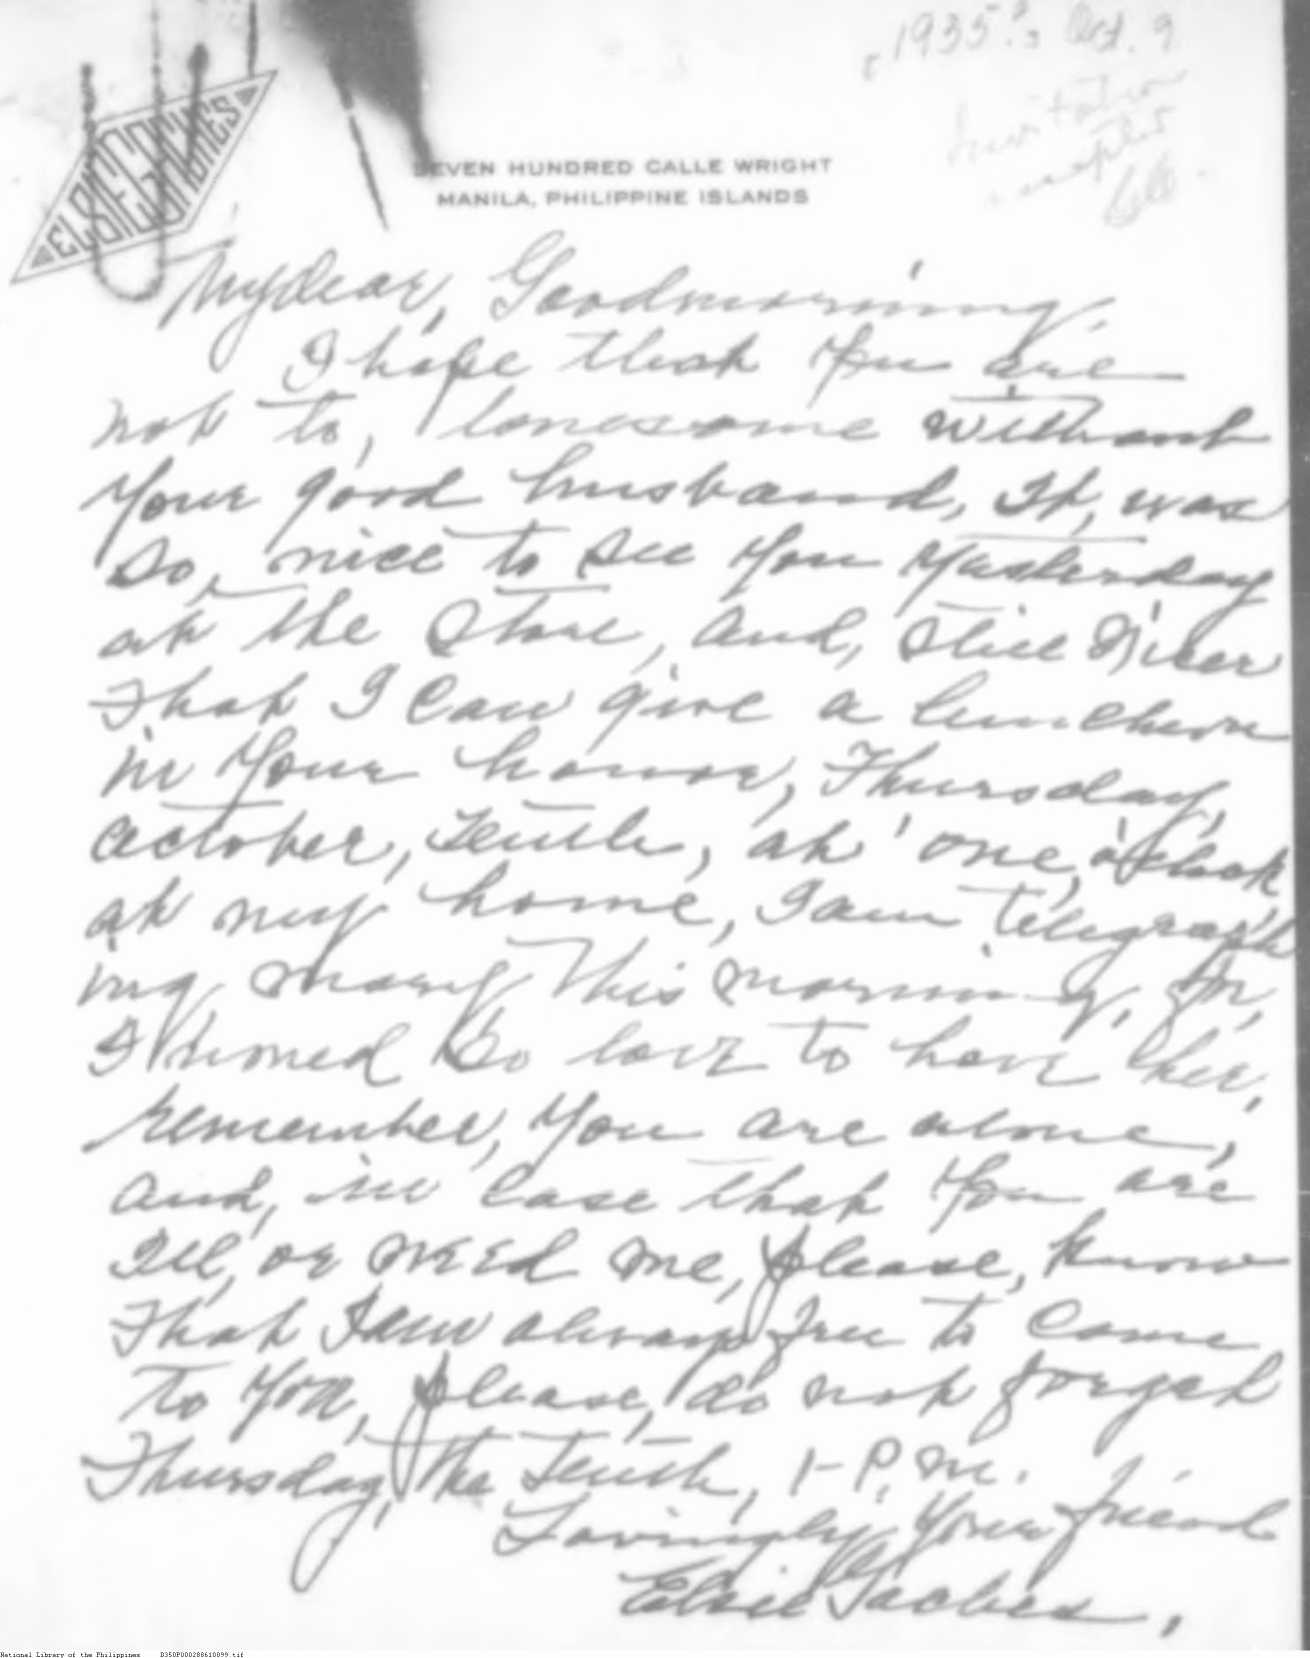 1935? Oct. 9
Invitation
accepted
ELSIE GACHES
SEVEN HUNDRED CALLE WRIGHT
MANILA, PHILIPPINE ISLANDS
My dear, Good morning,
I hope that you are
not to, lonesome without
your good husband, It, was
so, nice to see you yesterday
at the store, and, still nicer
that I can give a luncheon
in your honor, Thursday,
October, Tenth, at one, o'clock
at my home, I am telegraph
ing, Mary this morning, for,
I would so love to have her,
remember, you are alone,
and, in case that you are
Ill, or need me, please, know
that I am always free to come
to you, please, do not forget
Thursday, the Tenth, 1- P.M.
Lovingly your friend
Elsie Gaches,
National Library of the Philippines D350P000288610899.tif